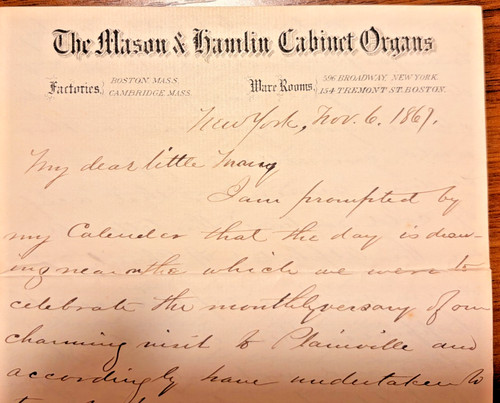 The Mason & Hamlin Cabinet Organs
Factories, } BOSTON. MASS. CAMBRIDGE. MASS.
Ware Rooms, } 596 BROADWAY, NEW YORK. 154 TREMONT ST. BOSTON.
New York, Nov. 6. 1867.
My dear little
I am prompted by
my Calender that the day is draw-
ing near on the which we were to
celebrate the monthlyversary of our
charming visit to Plainville and
accordingly have undertaken to